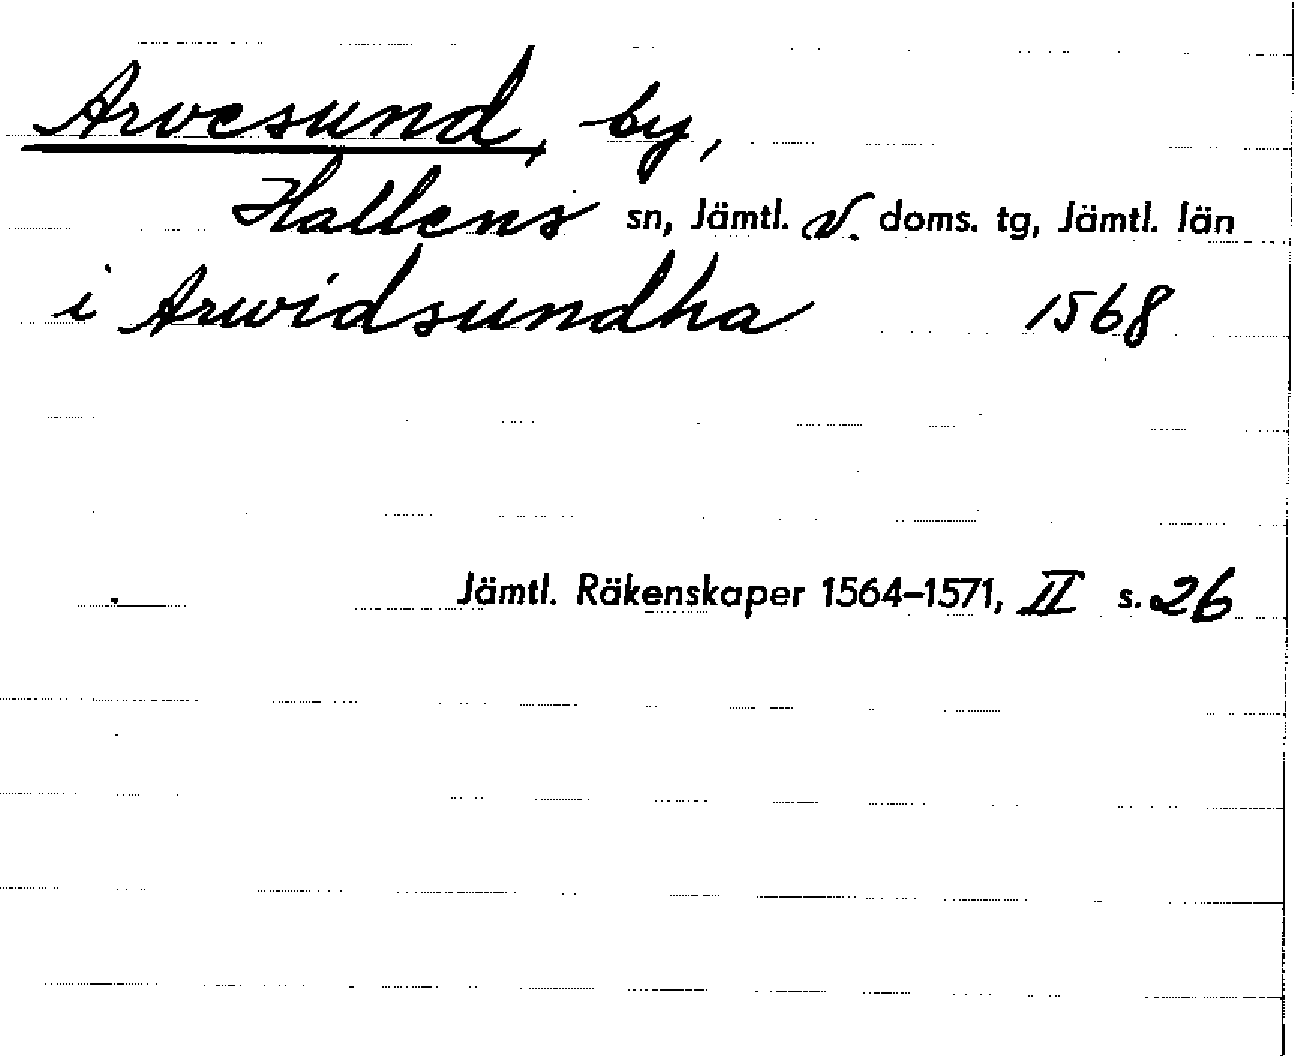 Arvesund, by,
Hallens sn, Jämtl. v. doms. tg, Jämtl. län
i Arwidsundha 1568
Jämtl. Räkenskaper 1564–1571, II s. 26